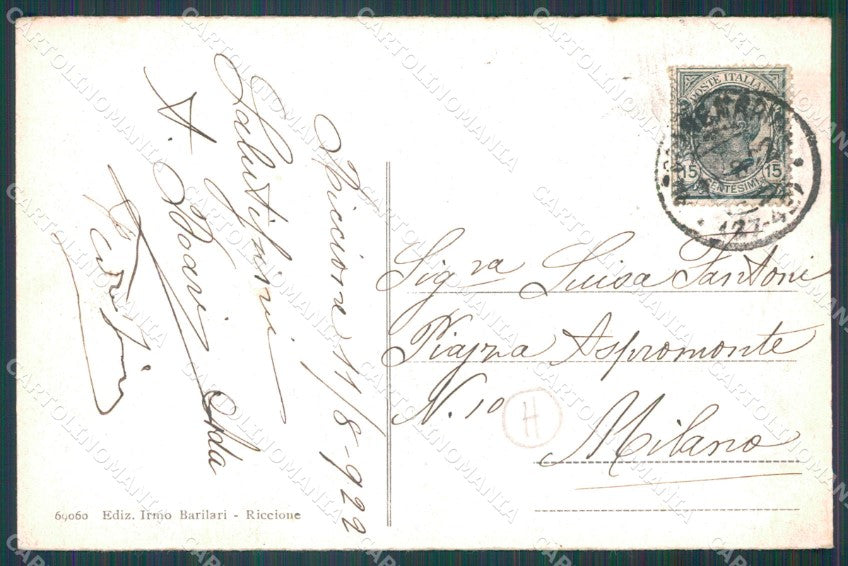 Riccione 11/8-922
Salutissimi
Ada
69060 Ediz. Irmo Barilari - Riccione
POSTE ITALIANE
15 15
CENTESIMI
Sig.ra Luisa Fantoni
Piazza Aspromonte
N. 10
H
Milano
CARTOLINOMANIA